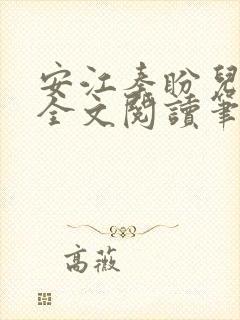 安江秦盼兒
全文閱讀筆
高薇